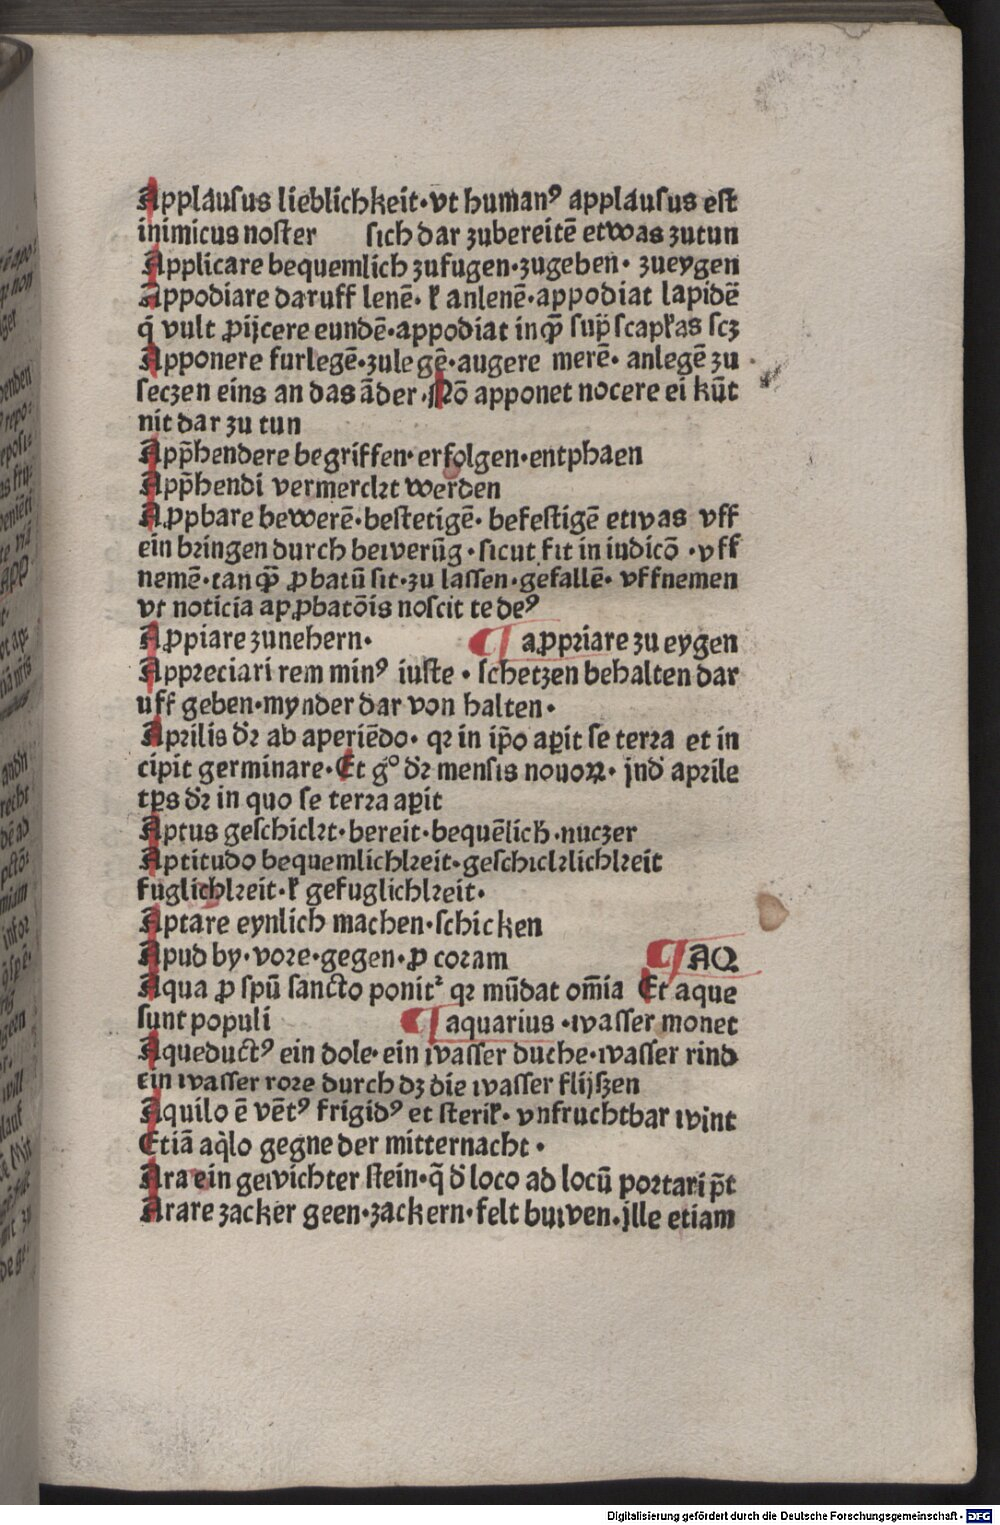 Applausus lieblichkeit·vt humanꝰ applausus est
inimicus noster sich dar zubereitē etwas zutun
Applicare bequemlich zufugen·zugeben· zueygen
Appodiare daruff lenē· ł anlenē·appodiat lapidē
q̄ vult ꝓijcere eundē·appodiat inqꝫ̄ sup̄ scapl̄as scꝫ
Apponere furlegē·zulegē·augere merē· anlegē zu
seczen eins an das āder·Nō apponet nocere ei kūt
nit dar zu tun
App̄hendere begriffen·erfolgen·entphaen
App̄hendi vermerckt werden
Aꝓpbare bewerē·bestetigē· befestigē etwas vff
ein bringen durch bewerūg·sicut fit in iudicō ·vff
nemē·tanqꝫ̄ ꝓbatū sit·zu lassen·gefallē· vffnemen
vt noticia apꝓbatōis noscit te deꝰ
Aꝓpiare zunehern· ¶ aꝓpriare zu eygen
Appreciari rem minꝰ iuste · schetzen behalten dar
uff geben·mynder dar von halten·
Aprilis dr̄ ab aperiēdo· qꝛ in ip̄o aꝑit se terra et in
cipit germinare·Et gͦ dr̄ mensis nouoꝝ· jnd̄ aprile
tp̄s dr̄ in quo se terra aꝑit
Aptus geschickt·bereit·bequēlich·nuczer
Aptitudo bequemlichkeit·geschicklichkeit
fuglichkeit·ł gefuglichkeit·
Aptare eynlich machen·schicken
Apud by·vore·gegen·ꝓ coram ¶ AQ
Aqua ꝓ spū sancto ponitᷣ qꝛ mūdat om̄ia Et aque
sunt populi ¶ aquarius ·wasser monet
Aqueductꝰ ein dole·ein wasser duche·wasser rind
ein wasser rore durch dz die wasser flijszen
Aquilo ē vētꝰ frigidꝰ et steril̄· vnfruchtbar wint
Etiā aq̄lo gegne der mitternacht·
Ara ein gewichter stein·q̄ d̄ loco ad locū portari p̄t
Arare zacker geen·zackern·felt buwen·jlle etiam
Digitalisierung gefördert durch die Deutsche Forschungsgemeinschaft - DFG